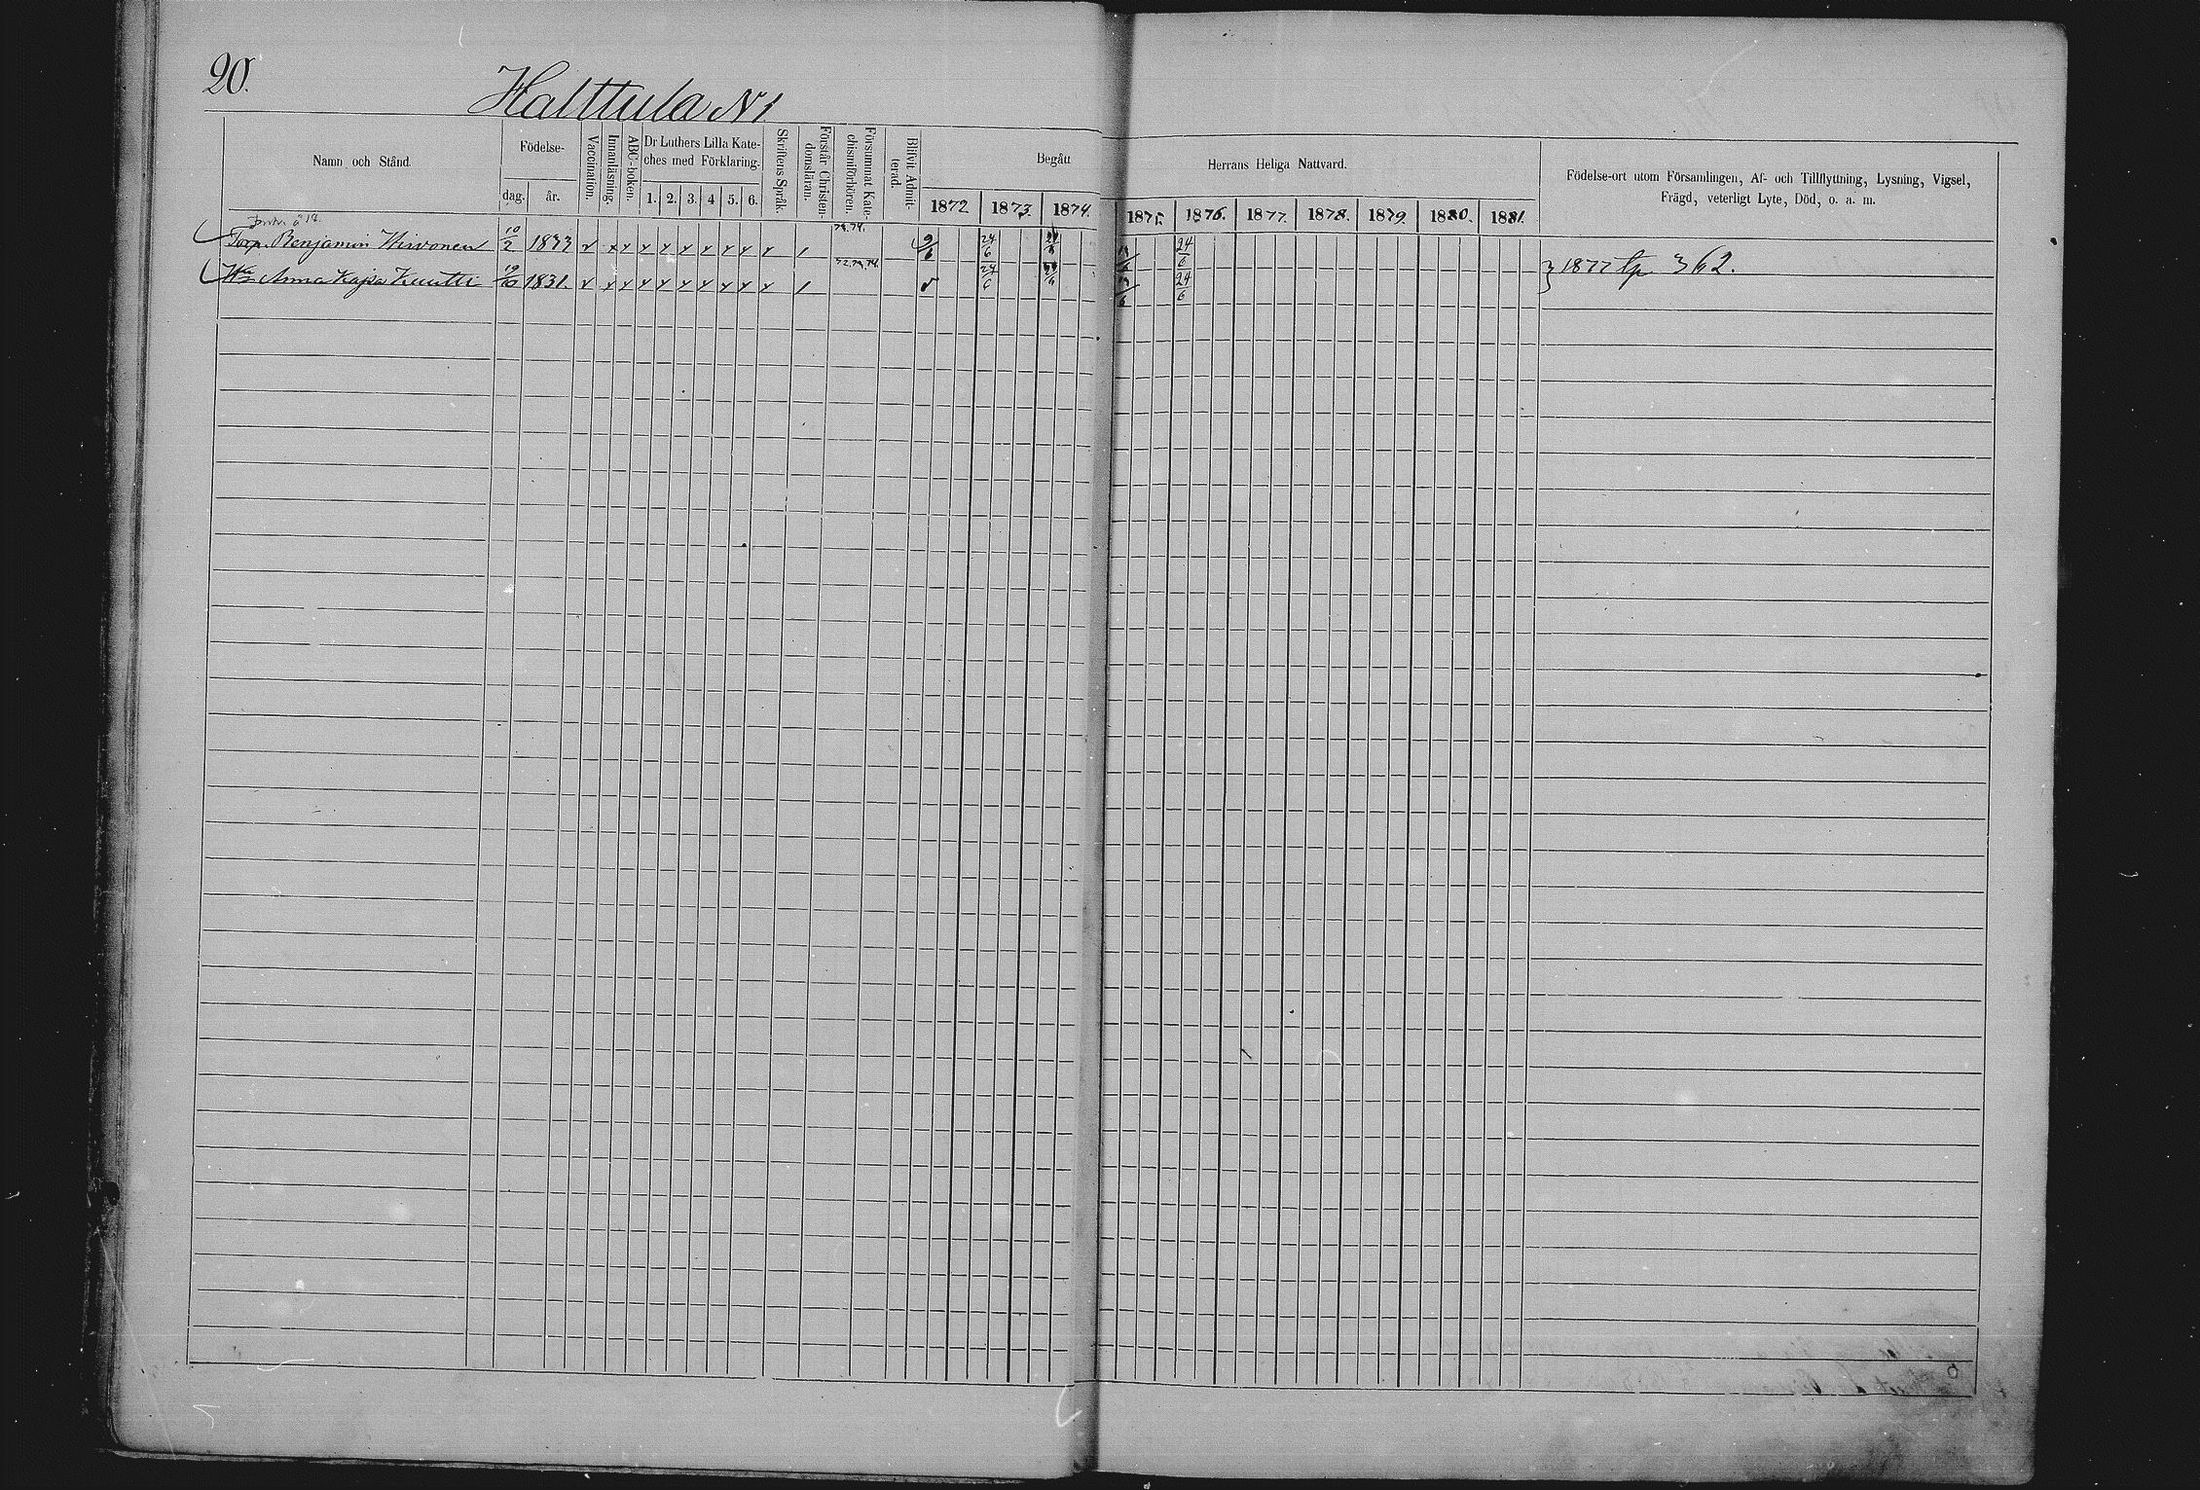 20.
Halttula N1
Namn och Stånd.
Födelse-
dag.
år.
Vaccination.
Innanläsning.
ABC-boken.
Dr Luthers Lilla Kate-
ches med Förklaring.
1. 2. 3. 4 5. 6.
Skriftens Språk.
Förstår Christen-
domsläran.
Försummat Kate-
chismiförhören.
Blifvit Admit-
terad.
Begått
1872 1873. 1874.
Herrans Heliga Nattvard.
1875. 1876. 1877. 1878. 1879. 1880. 1881.
Födelse-ort utom Församlingen, Af- och Tillflyttning, Lysning, Vigsel,
Frägd, veterligt Lyte, Död, o. a. m.
Torp. Benjamin Hirvonen 10/2 1833 9/6 24/6 24/6
73.74.
Hu Anna Kajsa Kuutti 19/10 1831. 24/6 24/6
72.73.74.
1877 tp 362.